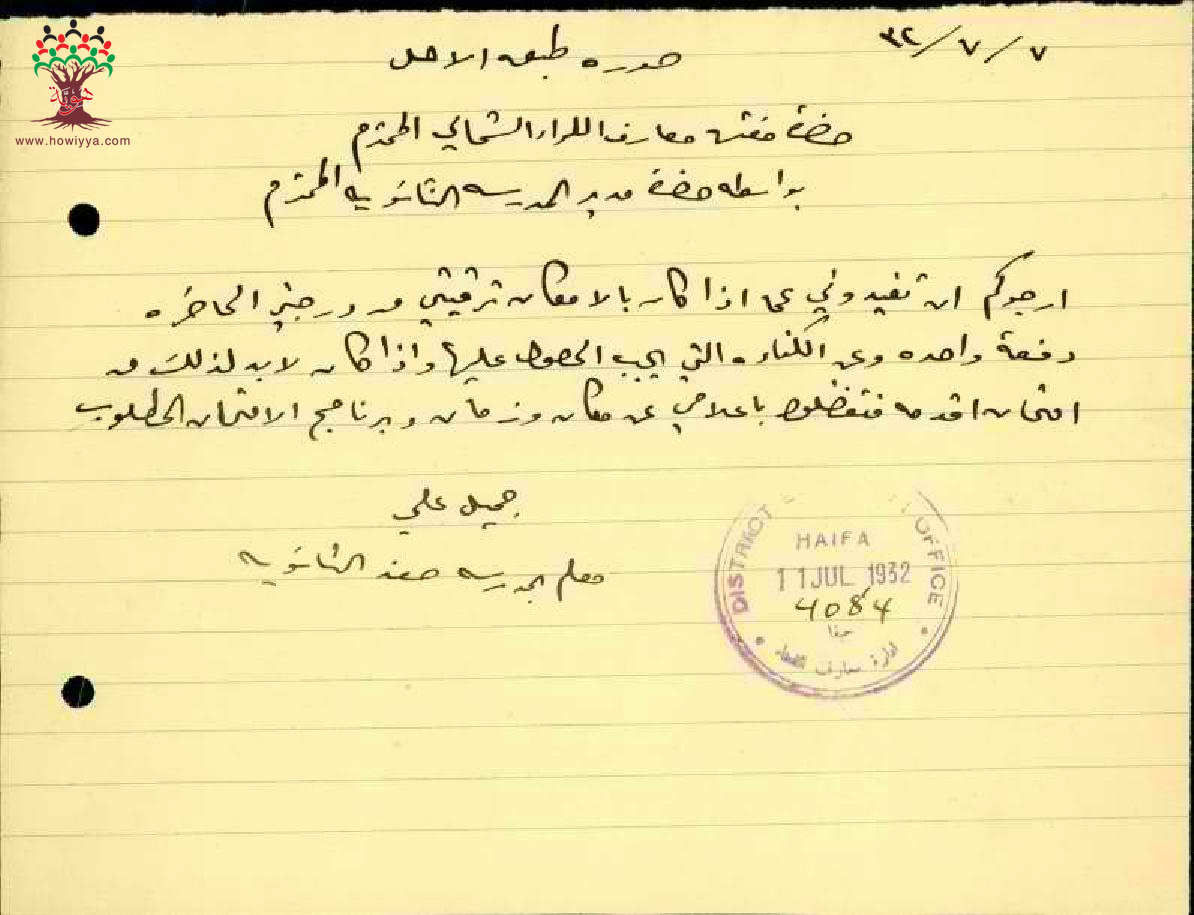 ٣٢/٧/٧
صوره طبق الاصل
حضرة مفتش معارف اللواء الشمالي المحترم
بواسطه حضرة مدير المدرسه الثانويه المحترم
ارجوكم ان تفيدوني عما اذا كان بالامكان ترقيتي من درجتي الحاضره
دفعة واحده وعن التي يجب الحصول عليها واذا كان لابد لذلك من
امتحان اقدمه فتفضلوا باعلامي عن مكان وزمان وبرنامج الامتحان المطلوب
جميل علي
معلم بمدرسه صفد الثانويه
DISTRICT OFFICE
HAIFA
11 JUL 1932
4084
حيفا
ادارة معارف
www.howiyya.com
هوية